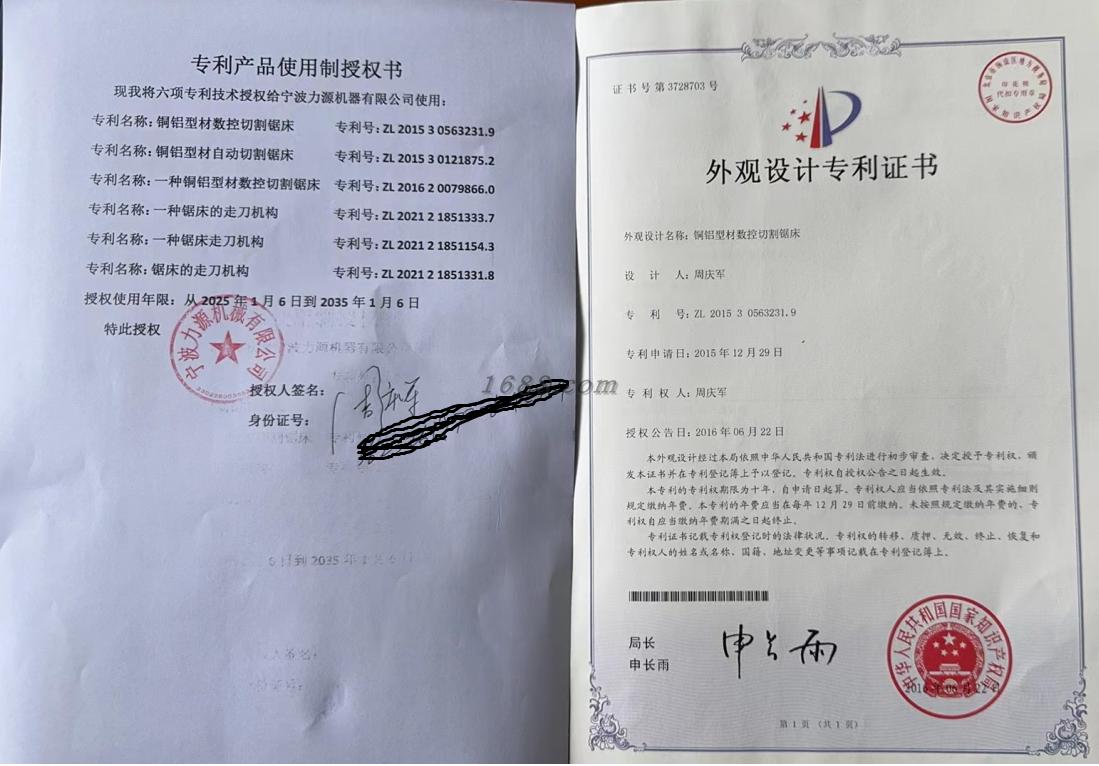 专利产品使用制授权书
现我将六项专利技术授权给宁波力源机器有限公司使用：
专利名称：铜铝型材数控切割锯床 专利号：ZL 2015 3 0563231.9
专利名称：铜铝型材自动切割锯床 专利号：ZL 2015 3 0121875.2
专利名称：一种铜铝型材数控切割锯床 专利号：ZL 2016 2 0079866.0
专利名称：一种锯床的走刀机构 专利号：ZL 2021 2 1851333.7
专利名称：一种锯床走刀机构 专利号：ZL 2021 2 1851154.3
专利名称：锯床的走刀机构 专利号：ZL 2021 2 1851331.8
授权使用年限：从 2025 年 1 月 6 日到 2035 年 1 月 6 日
特此授权
宁波力源机械有限公司
波力源机器有限公司
授权人签名：
身份证号：
6 日到 2035 年 1 月 6 日
1688.com
证书号第3728703号
印花税
代扣专用章
国家知识产权局
外观设计专利证书
外观设计名称：铜铝型材数控切割锯床
设计人：周庆军
专利号：ZL 2015 3 0563231.9
专利申请日：2015年12月29日
专利权人：周庆军
授权公告日：2016年06月22日
本外观设计经过本局依照中华人民共和国专利法进行初步审查，决定授予专利权，颁
发本证书并在专利登记簿上予以登记。专利权自授权公告之日起生效。
本专利的专利权期限为十年，自申请日起算。专利权人应当依照专利法及其实施细则
规定缴纳年费。本专利的年费应当在每年12月29日前缴纳。未按照规定缴纳年费的，专
利权自应当缴纳年费期满之日起终止。
专利证书记载专利权登记时的法律状况。专利权的转移、质押、无效、终止、恢复和
专利权人的姓名或名称、国籍、地址变更等事项记载在专利登记簿上。
局长
申长雨
申长雨
中华人民共和国国家知识产权局
2016年06月22日
第1页（共1页）